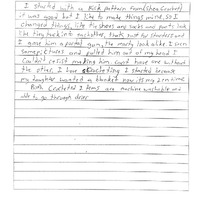 I started with a Rick pattern from (Shea Crochet)
it was good but I like to make things mine, so I
changed things, like the shoes and socks and pants look
like tiny tucked in and other, that's just for starters and
I gave him a portal gun, the morty look alike I can
Somepictures and pulled him out of my head I
Couldn't resist making him can't have one without
the other. I love crocheting I started because
my daughter wanted a blanket now its my 2nd time
Both Crocheted Items are machine washable and
able to go through drier